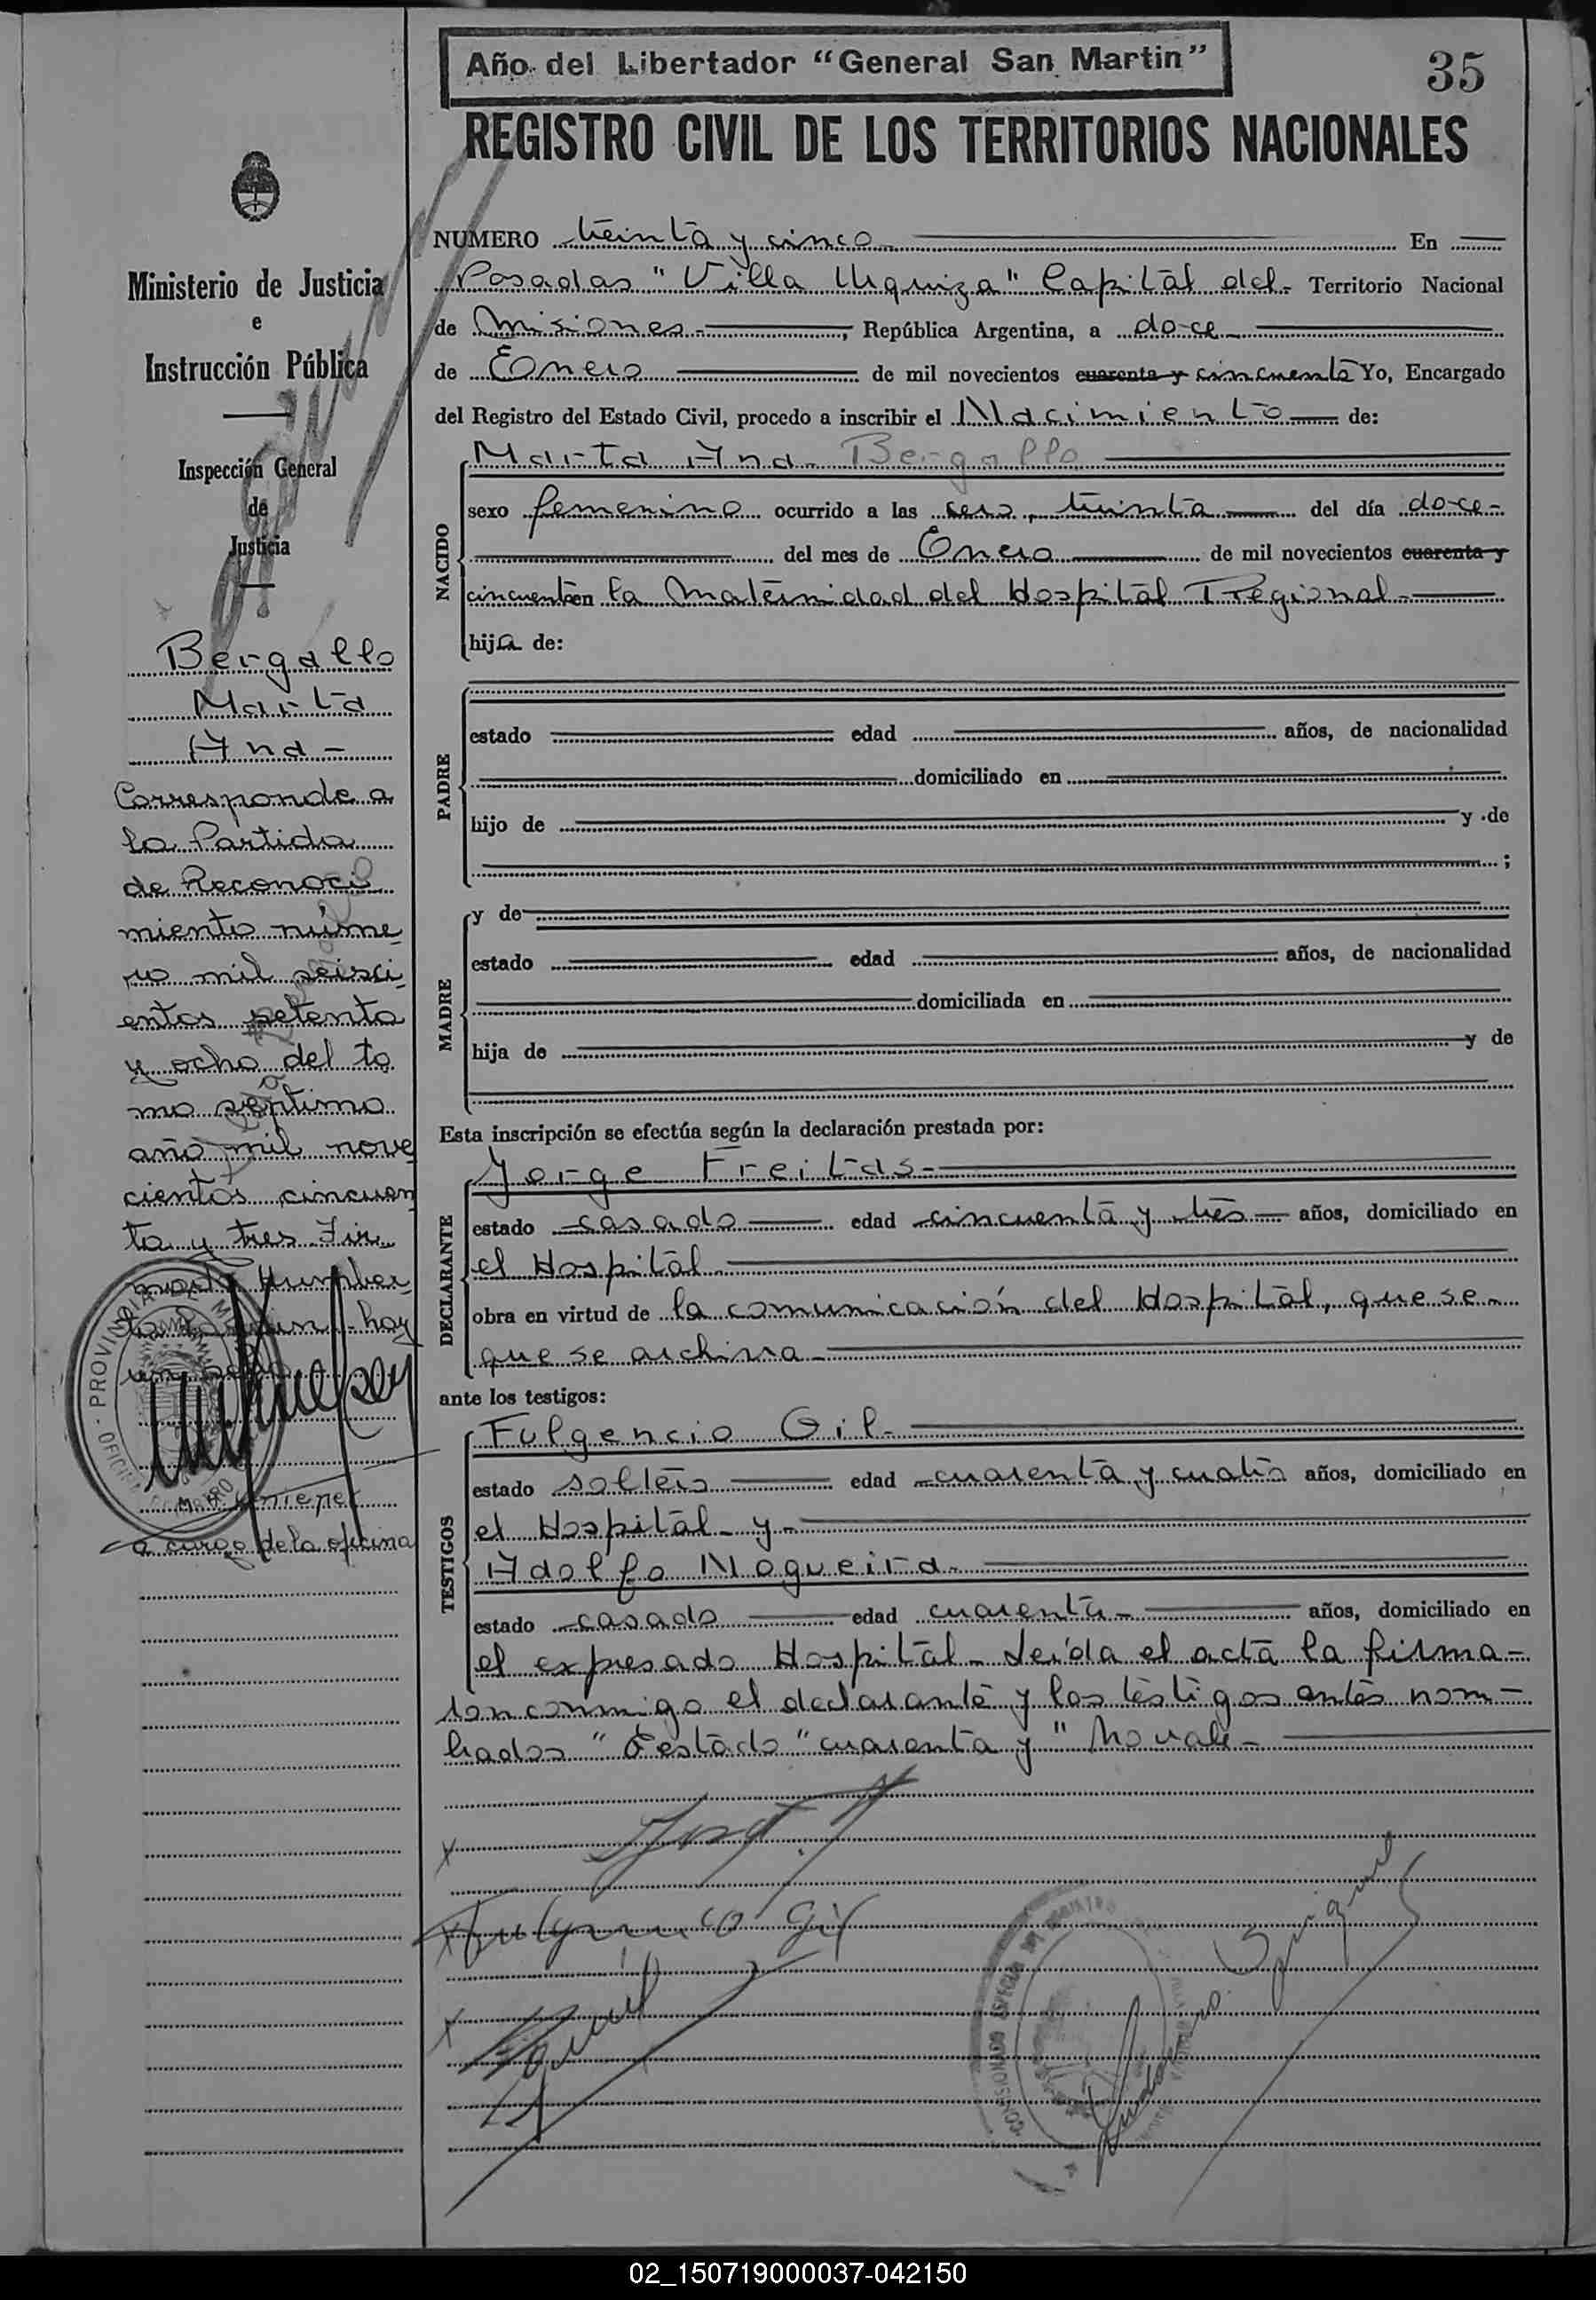 Año del Libertador “General San Martin”
35
REGISTRO CIVIL DE LOS TERRITORIOS NACIONALES
Ministerio de Justicia
e
Instrucción Pública
Inspección General
de
Justicia
Bergallo
Marta
Ana-
Corresponde a
la Partida
de Reconoci
miento núme
ro mil seisci
entos setenta
y ocho del to
mo septimo
año mil nove
cientos cincuen
ta y tres Fir
mado Humber
hay
a cargo de la oficina
NUMERO treinta y cinco En
Posadas "Villa Urquiza" Capital del- Territorio Nacional
de Misiones- , República Argentina, a doce
de Enero de mil novecientos cuarenta y cincuenta Yo, Encargado
del Registro del Estado Civil, procedo a inscribir el Nacimiento de:
NACIDO
Marta Ana- Bergallo
sexo femenino ocurrido a las cero, treinta del día doce-
del mes de Enero de mil novecientos cuarenta y
cincuenta en la Maternidad del Hospital Regional-
hija de:
PADRE
estado edad años, de nacionalidad
domiciliado en
hijo de y de
;
MADRE
y de
estado edad años, de nacionalidad
domiciliada en
hija de y de
Esta inscripción se efectúa según la declaración prestada por:
DECLARANTE
Jorge Freitas-
estado casado edad cincuenta y tres años, domiciliado en
el Hospital
obra en virtud de la comunicación del Hospital, que se-
que se archiva
ante los testigos:
TESTIGOS
Fulgencio Gil-
estado soltero edad cuarenta y cuatro años, domiciliado en
el Hospital- y-
Adolfo Nogueira-
estado casado edad cuarenta- años, domiciliado en
el expresado Hospital- Leída el acta la firma-
ron conmigo el declarante y los testigos antes nom-
brados "Testado "cuarenta y" No vale-
Fulgencio Gil
02_150719000037-042150